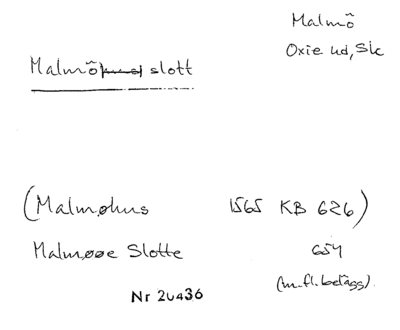 Malmö
Oxie hd, Sk
Malmö hus slott
(Malmøhus 1565 KB 626)
Malmøøe Slotte 654
(m.fl. belägg).
Nr 20436